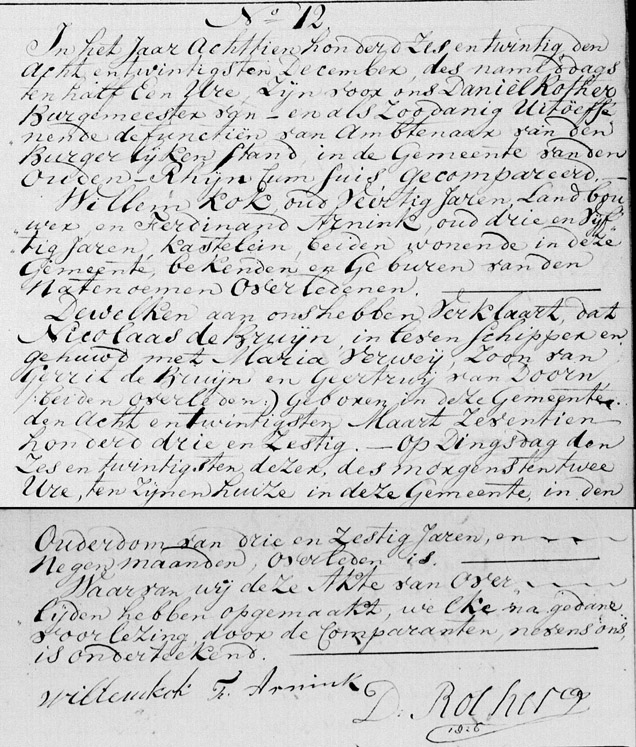 No 12
In het Jaar Achttien honderd Zes en twintig, den
Acht en twintigsten December, des namiddags
ten half Een Ure, Zijn voor ons Daniel Rother
Burgemeester van - en als Zoodanig Uitoeffe
nende de functiën van Ambtenaar van den
Burgerlijken Stand, in de Gemeente van den
Ouden-Rhijn Cum Suis, gecompareerd. —
Willem Kok, oud Veertig Jaren, Landbou
wer, en Ferdinand Arnink, oud drie en Vijf
tig Jaren, Kastelein, beiden wonende in deze
Gemeente, bekenden en Geburen van den
Natenoemen Overledenen. —
Dewelken aan ons hebben Verklaart, dat
Nicolaas de Bruijn, in leven Schipper en
gehuwd met Maria Verweij, Zoon van
Gerrit de Bruijn en Geertruij van Doorn,
(beiden overleden.) Geboren in deze Gemeente
den Acht en twintigsten Maart Zeventien
honderd drie en Zestig. — Op Dingsdag den
Zes en twintigsten dezer, des morgens ten twee
Ure, ten Zijnen huize in deze Gemeente, in den
Ouderdom van drie en Zestig Jaren, en
Negen maanden, overleden is. —
Waarvan wij deze Akte van Over
lijden hebben opgemaakt, welke na gedane
voorlezing, door de Comparanten, nevens ons,
is onderteekend. —
Willem kok F. Arnink D. Rother
1826